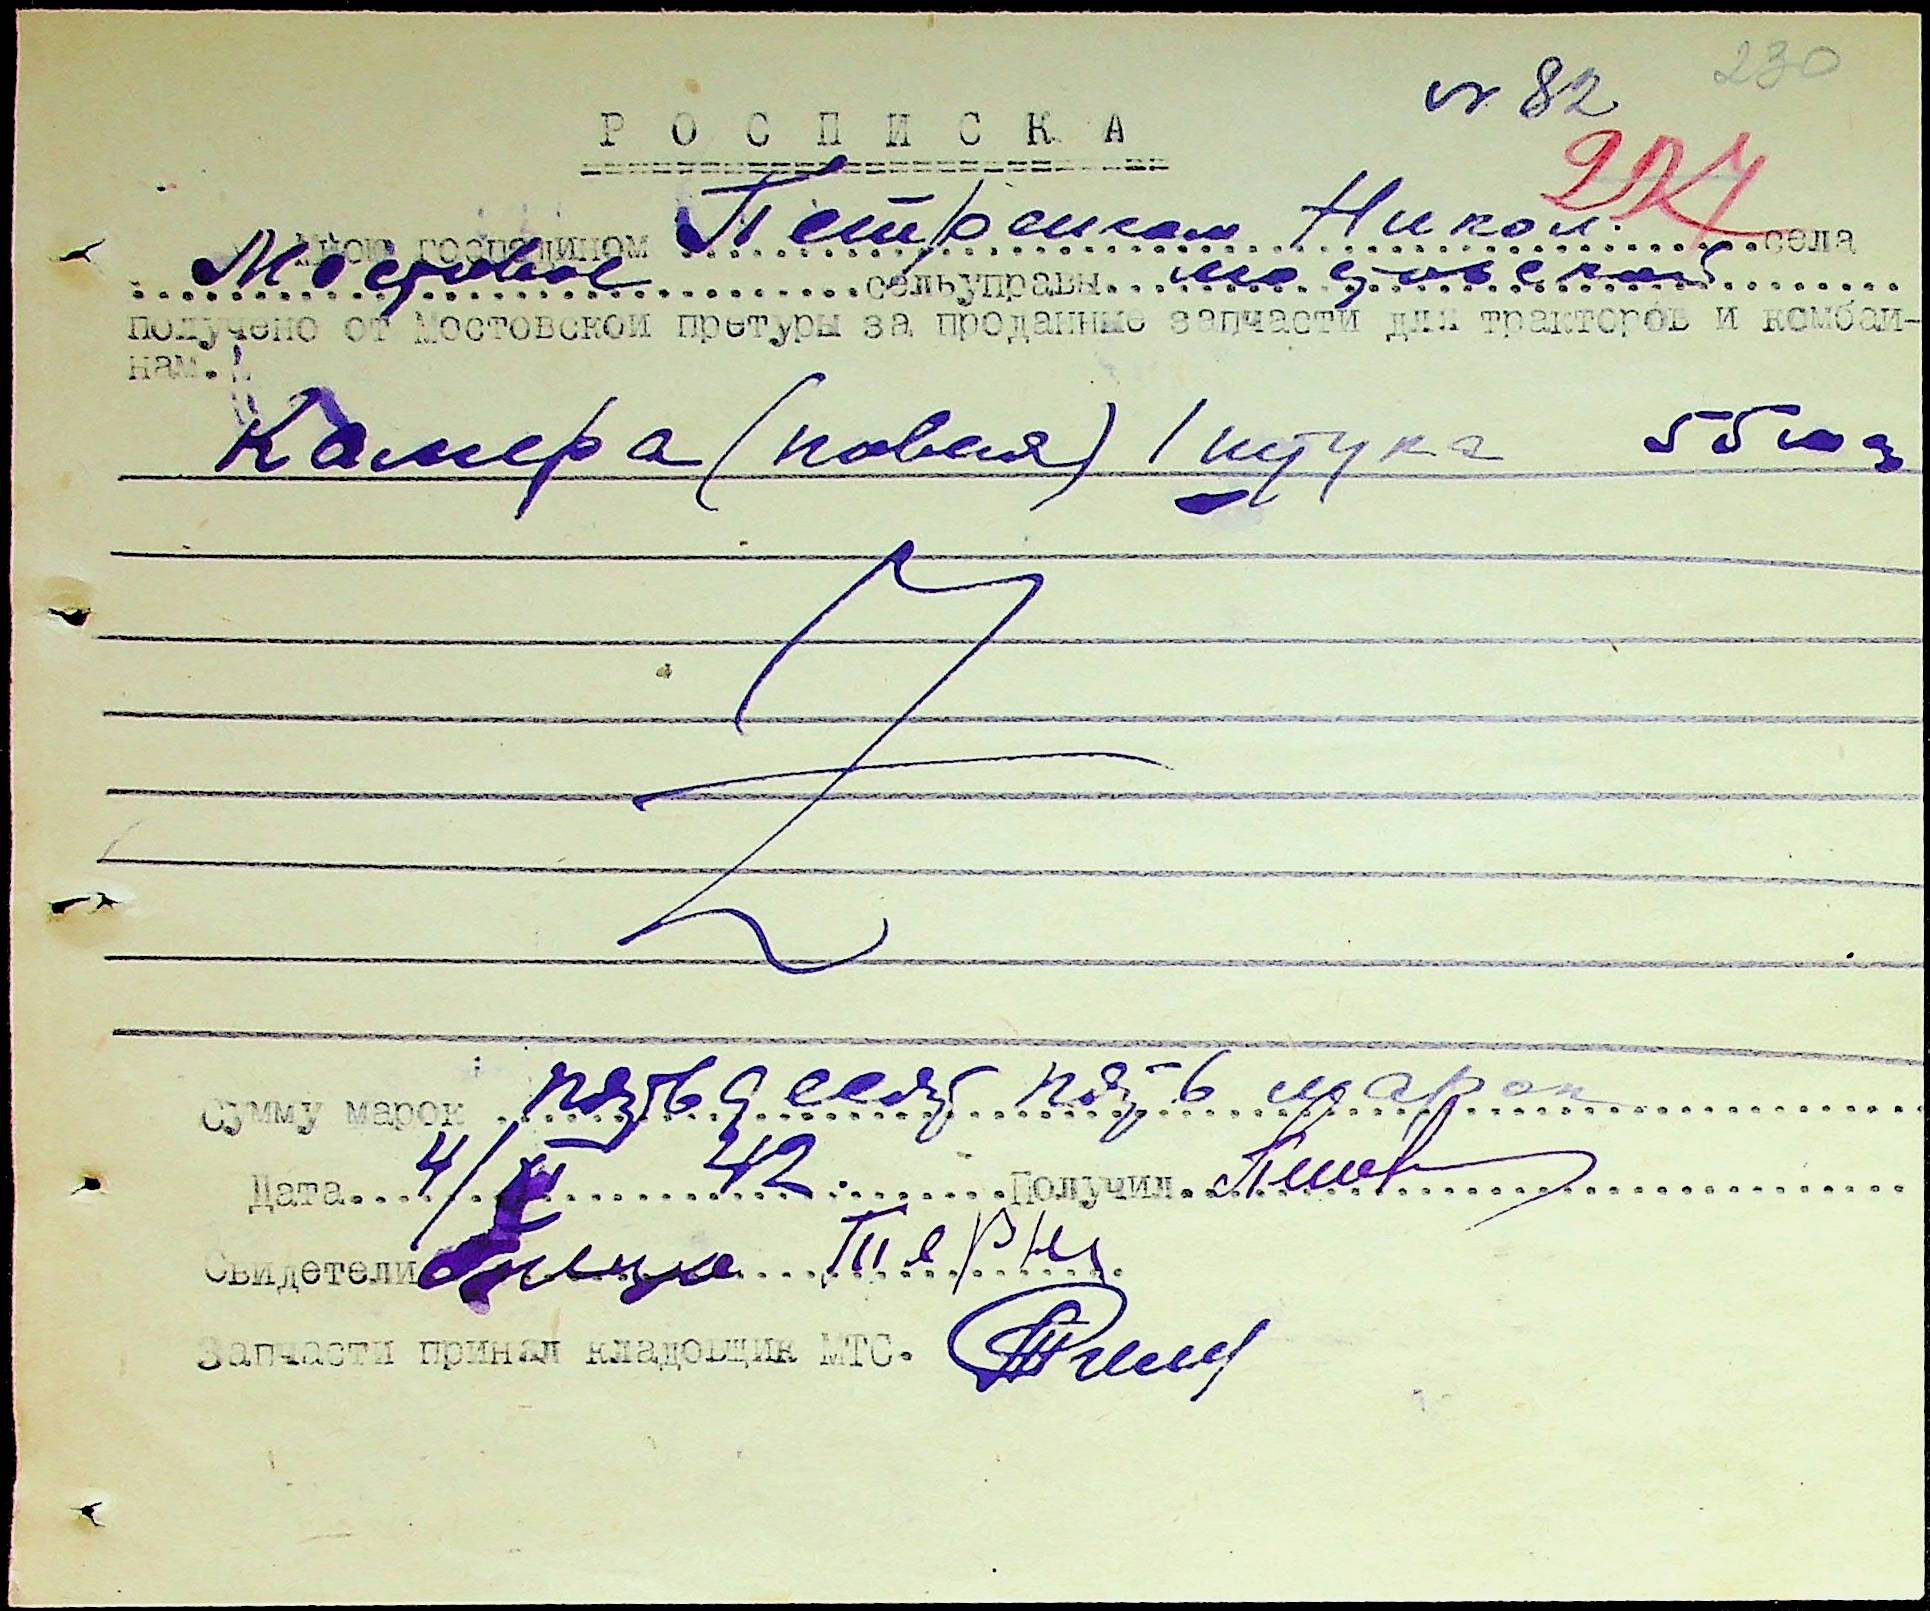 230
№ 82
Р О С П И С К А
227
Мною господином Петренком Никол. села
Мостовое сельуправы Мостовской
получено от Мостовской претуры за проданные запчасти для тракторов и комбай-
нам.
Камера (новая) 1 штука 55 мар
Сумму марок пятьдесят пять марок
Дата 4/II 42. Получил
Свидетели
Запчасти принял кладовщик МТС.